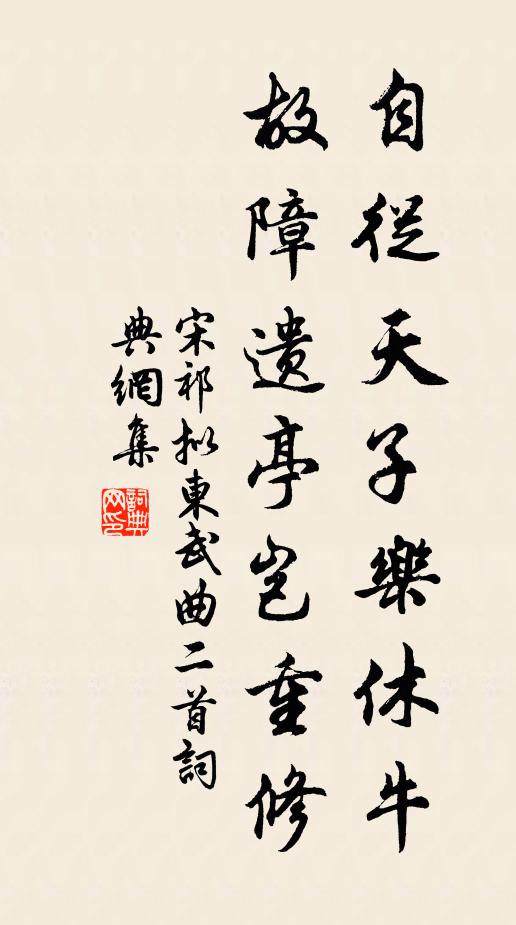 自從天子樂休牛
故障遺亭豈重修
宋祁擬東武曲二首詞
典網集
詞典網印